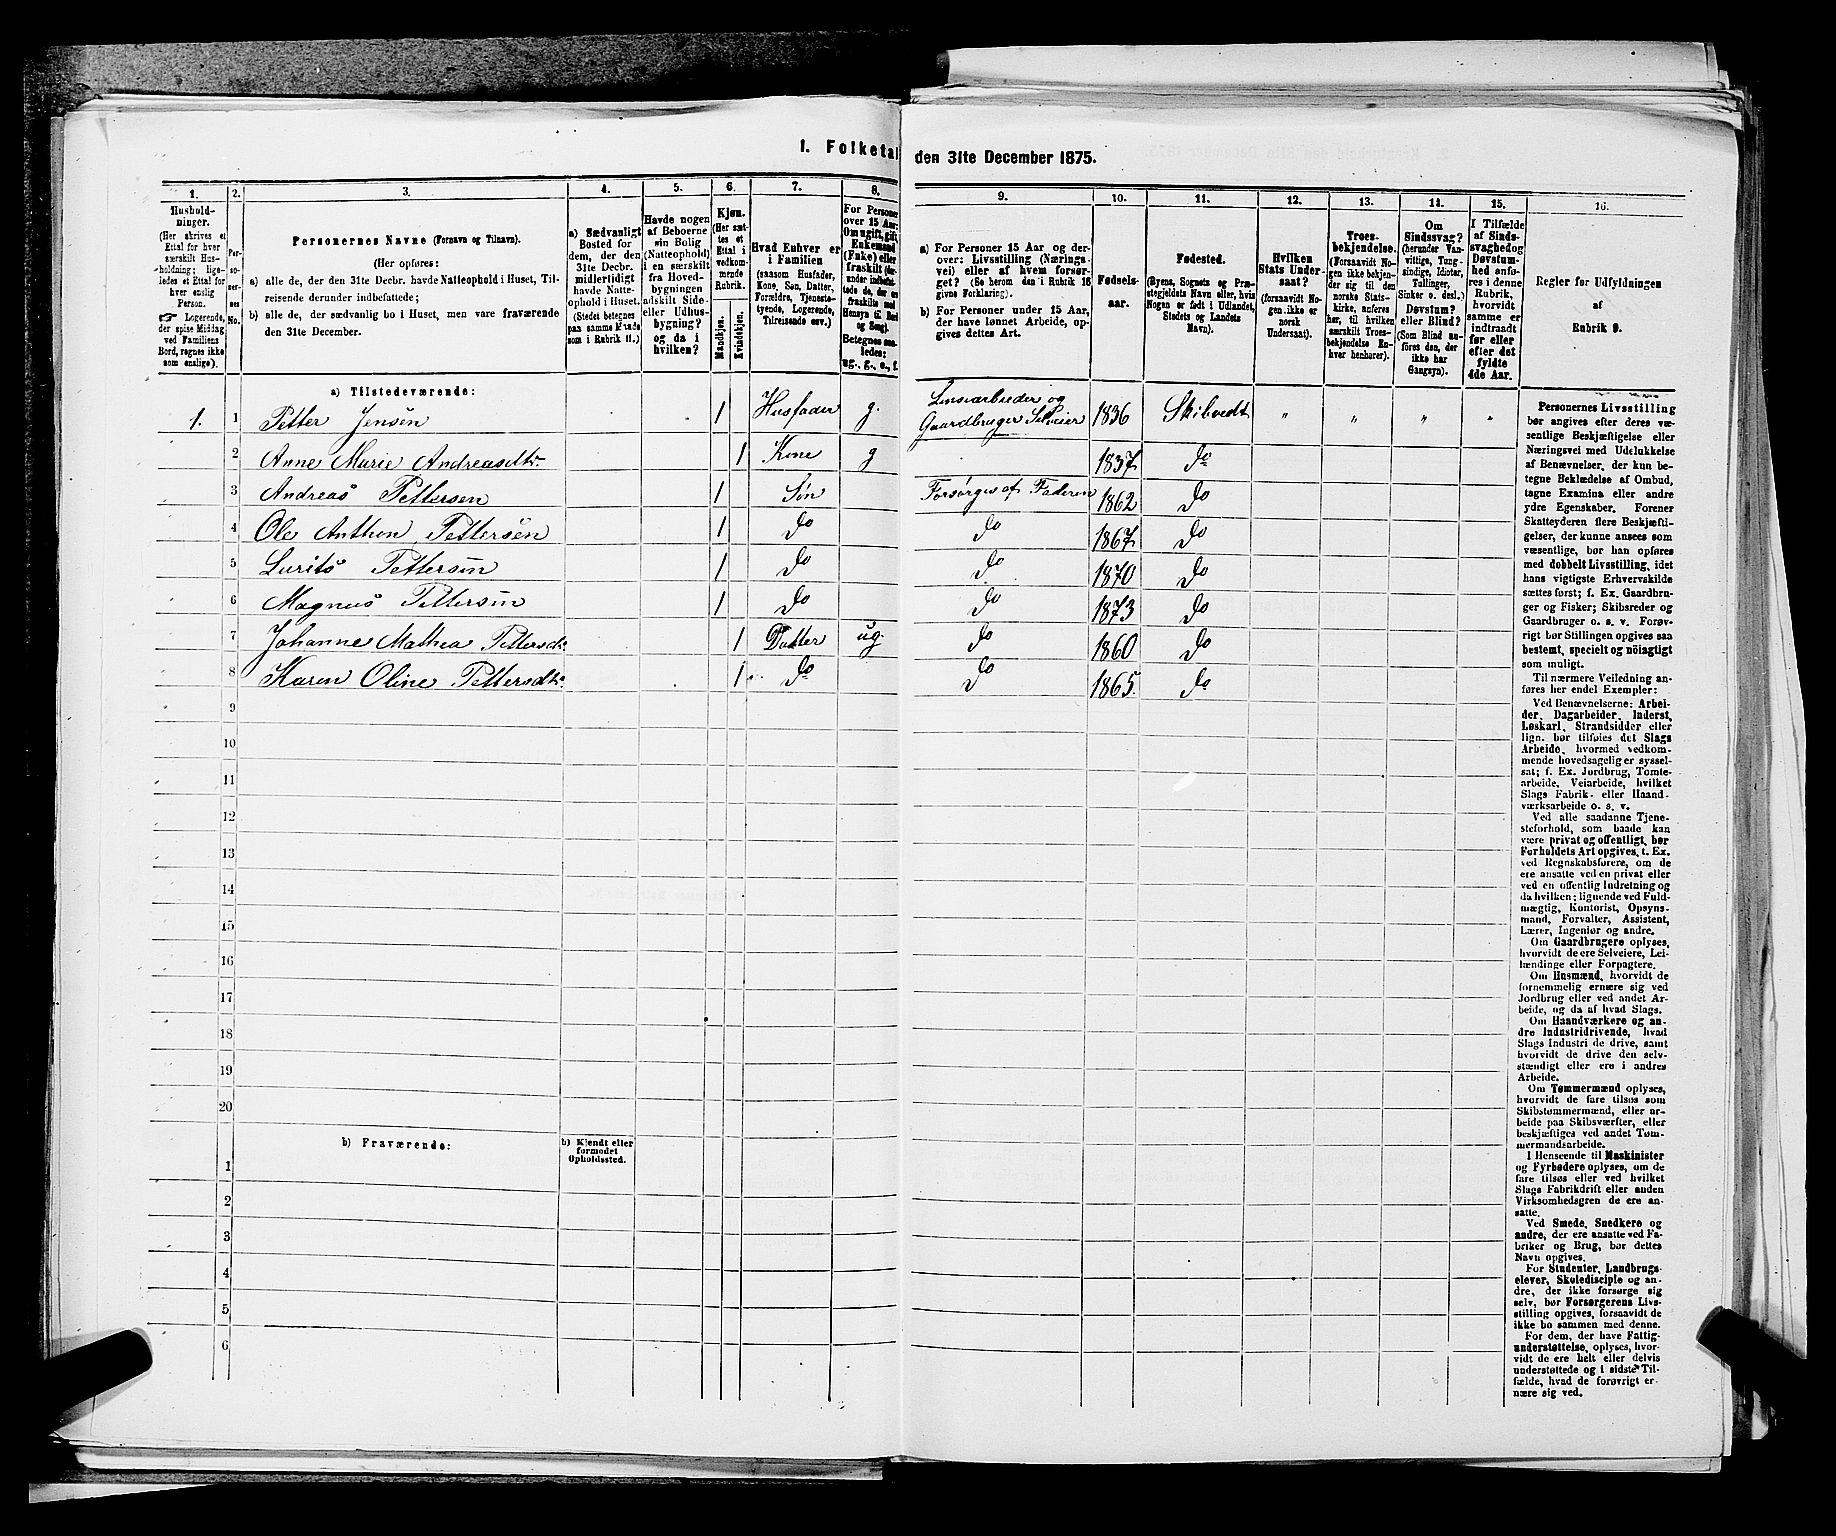 1. Folketal den 31te December 1875.
1. 2. 3. 4. 5. 6. 7. 8. 9. 10. 11. 12. 13. 14. 15. 16.
Hushold-
ninger.
(Her skrives et
Ettal for hver
særskilt Hus-
holdning; lige-
ledes et Ettal for
hver enslig
Person.
☞ Logerende,
der spise Middag
ved Familiens
Bord, regnes ikke
som enslige).
Per-
so-
ner-
nes
No.
Personernes Navne (Fornavn og Tilnavn).
(Her opføres:
a) alle de, der den 31te Decbr. havde Natteophold i Huset, Til-
reisende derunder indbefattede;
b) alle de, der sædvanlig bo i Huset, men vare fraværende
den 31te December.
a) Sædvanligt
Bosted for
dem, der den
31te Decbr.
midlertidigt
havde Natte-
ophold i Huset.
(Stedet betegnes
paa samme Maade
som i Rubrik 11.)
Havde nogen
af Beboerne
sin Bolig
(Natteophold)
i en særskilt
fra Hoved-
bygningen
adskilt Side-
eller Udhus-
bygning?
og da i
hvilken?
Kjøn.
(Her sæt-
tes et
Ettal i
vedkom-
mende
Rubrik.
Mandkjøn.
Kvindekjøn.
Hvad Enhver er
i Familien
(saasom Husfader,
Kone, Søn, Datter,
Forældre, Tjeneste-
tyende, Logerende,
Tilreisende osv.)
For Personer
over 15 Aar:
Om ugift, gift,
Enkemand
(Enke) eller
fraskilt (der-
under indbefat-
tede de, der ere
fraskilte med
Hensyn til Bord
og Seng).
Betegnes saa-
ledes:
ug., g., e., f.
a) For Personer 15 Aar og der-
over: Livsstilling (Nærings-
vei) eller af hvem forsør-
get? (Se herom den i Rubrik 16
givne Forklaring).
b) For Personer under 15 Aar,
der have lønnet Arbeide, op-
gives dettes Art.
Fødsels-
aar.
Fødested.
(Byens, Sognets og Præ-
stegjeldets Navn eller, hvis
Nogen er født i Udlandet,
Stedets og Landets
Navn).
Hvilken
Stats Under-
saat?
(forsaavidt No-
gen ikke er
norsk
Undersaat).
Troes-
bekjendelse.
(Forsaavidt No-
gen ikke bekjen-
der sig til den
norske Stats-
kirke, anføres
her, til hvilken
særskilt Troes-
bekjendelse En-
hver henhører).
Om
Sindssvag?
(herunder Van-
vittige, Tung-
sindige, Idioter,
Tullinger,
Sinker o. desl.)
Døvstum?
eller Blind?
(Som Blind an-
føres den, der
ikke har
Gangsyn).
I Tilfælde
af Sinds-
svaghed og
Døvstum-
hed anfø-
res i denne
Rubrik,
hvorvidt
samme er
indtraadt
før eller
efter det
fyldte
4de Aar.
Regler for Udfyldningen
af
Rubrik 9.
a) Tilstedeværende:
1. 1 Petter Jensen 1 Husfader g. Lensearbeider og Gaardbruger Selveier 1836 Skibvedt " " " "
2 Anne Marie Andreasdtr. 1 Kone g 1837 do
3 Andreas Pettersen 1 Søn Forsørges af Faderen 1862 do
4 Ole Anthon Pettersen 1 do do 1867 do
5 Lurits Pettersen 1 do do 1870 do
6 Magnus Pettersen 1 do do 1873 do
7 Johanne Mathea Pettersdtr. 1 Datter ug. do 1860 do
8 Karen Oline Pettersdtr. 1 do do 1865. do
9
10
11
12
13
14
15
16
17
18
19
20
b) Fraværende:
b) Kjendt eller
formodet
Opholdssted.
1
2
3
4
5
6
Personernes Livsstilling
bør angives efter deres væ-
sentlige Beskjæftigelse eller
Næringsvei med Udelukkelse
af Benævnelser, der kun be-
tegne Beklædelse af Ombud,
tagne Examina eller andre
ydre Egenskaber. Forener
Skatteyderen flere Beskjæfti-
gelser, der kunne ansees som
væsentlige, bør han opføres
med dobbelt Livsstilling, idet
hans vigtigste Erhvervskilde
sættes først; f. Ex. Gaardbru-
ger og Fisker; Skibsreder og
Gaardbruger o. s. v. Forøv-
rigt bør Stillingen opgives saa
bestemt, specielt og nöiagtigt
som muligt.
Til nærmere Veiledning an-
føres her endel Exempler:
Ved Benævnelserne: Arbei-
der, Dagarbeider, Inderst,
Løskarl, Strandsidder eller
lign. bør tilføies det Slags
Arbeide, hvormed vedkom-
mende hovedsagelig er syssel-
sat; f. Ex. Jordbrug, Tomte-
arbeide, Veiarbeide, hvilket
Slags Fabrik- eller Haand-
værksarbeide o. s. v.
Ved alle saadanne Tjene-
steforhold, som baade kan
være privat og offentligt, bør
Forholdets Art opgives, t. Ex.
ved Regnskabsførere, om de
ere ansatte ved en privat eller
ved en offentlig Indretning og
da hvilken; lignende ved Fuld-
mægtig, Kontorist, Opsyns-
mand, Forvalter, Assistent,
Lærer, Ingeniør og andre.
Om Gaardbrugere oplyses,
hvorvidt de ere Selveiere, Lei-
lændinge eller Forpagtere.
Om Husmænd, hvorvidt de
fornemmelig ernære sig ved
Jordbrug eller ved andet Ar-
beide, og da af hvad Slags.
Om Haandværkere og an-
dre Industridrivende, hvad
Slags Industri de drive, samt
hvorvidt de drive den selv-
stændigt eller ere i andres
Arbeide.
Om Tømmermænd oplyses,
hvorvidt de fare tilsøs som
Skibstømmermænd, eller ar-
beide paa Skibsværfter, eller
beskjæftiges ved andet Tøm-
mermandsarbeide.
I Henseende til Maskinister
og Fyrbødere oplyses, om de
fare tilsøs eller ved hvilket
Slags Fabrikdrift eller anden
Virksomhedsgren de ere an-
satte.
Ved Smede, Snedkere og
andre, der ere ansatte ved Fa-
briker og Brug, bør dettes
Navn opgives.
For Studenter, Landbrugs-
elever, Skoledisciple og an-
dre, der ikke forsørge sig
selv, bør Forsørgerens Livs-
stilling opgives, forsaavidt de
ikke bo sammen med denne.
For dem, der have Fattig-
understøttelse, oplyses, hvor-
vidt de ere helt eller delvis
understøttede og i sidste Til-
fælde, hvad de forøvrigt er-
nære sig ved.